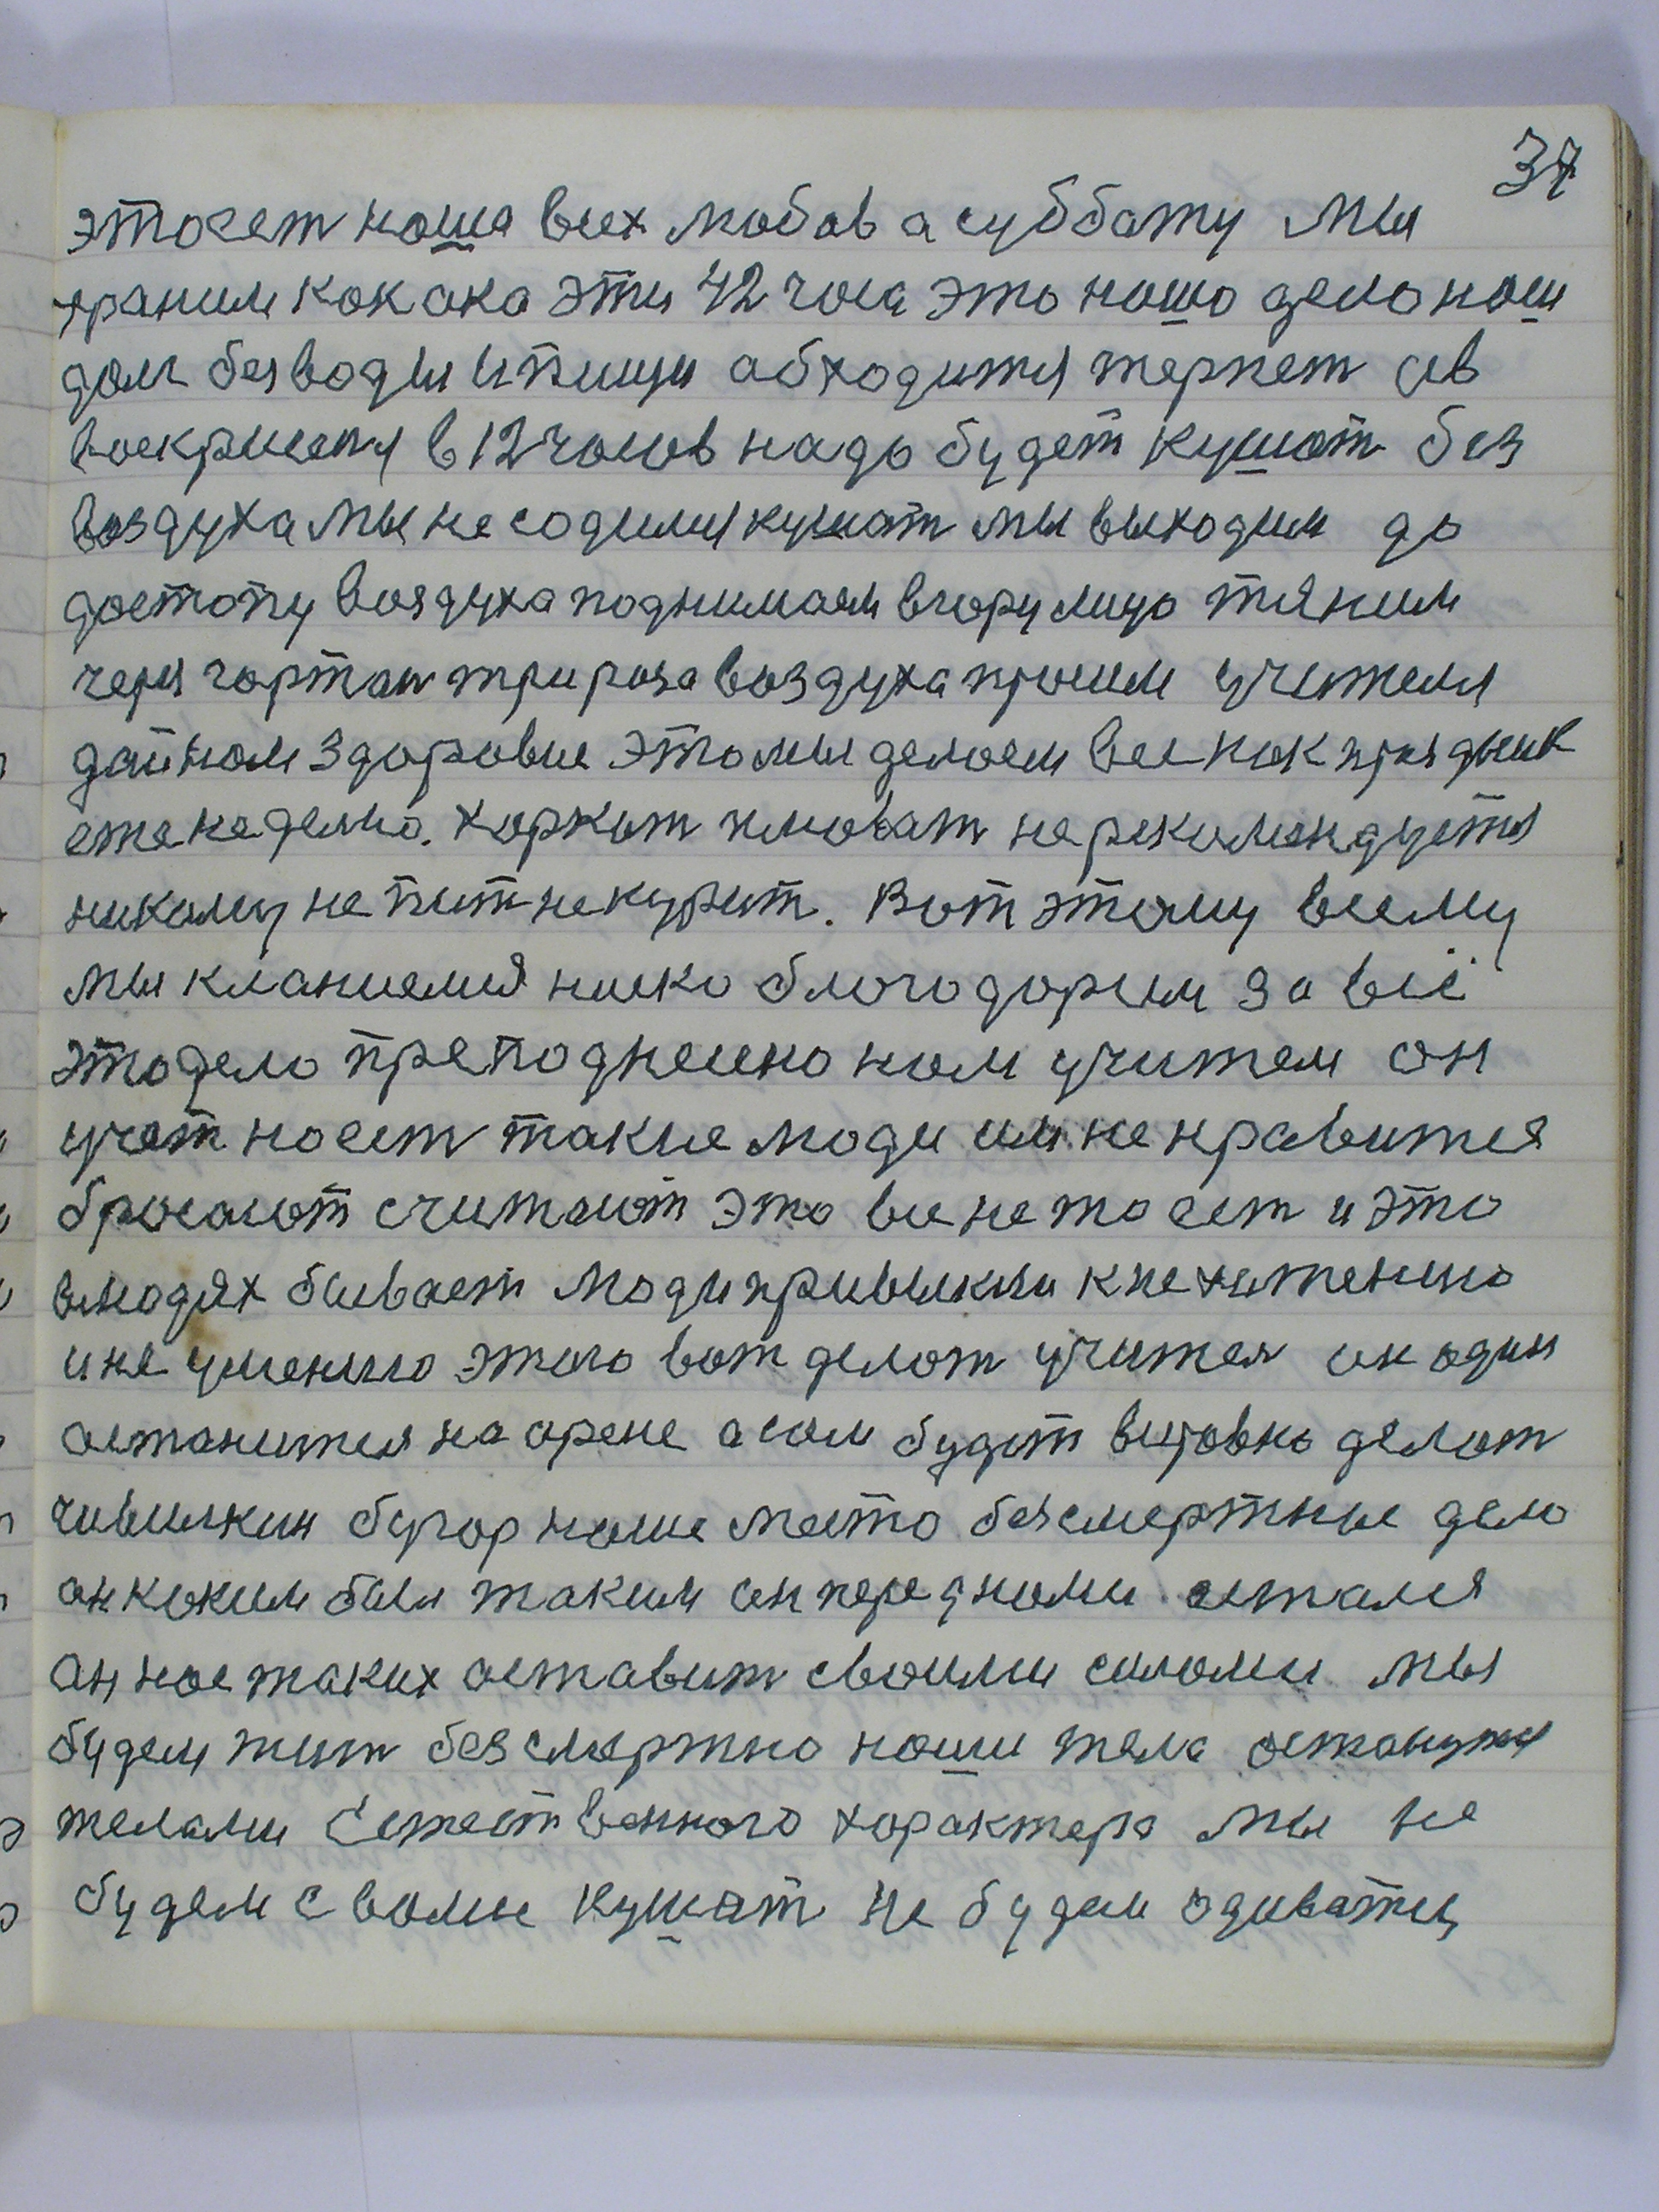 37
этоест наша всех любов а субботу мы
храним как ока эти 42 часа это нашо дело наш
долг без воды и пищи абходится терпет а в
воскрисеня в 12 часов надо будет кушат без
воздуха мы не содимся кушат мы выходим до
достопу воздуха поднимаем вгору лицо тяним
через гортан три раза воздуха просим учителя
дай нам здоровие это мы делаем все как праздник
еженеделно. харкат плюват не рекомендуется
никаму не пит не курит. Вот этому всему
мы кланиемся ниско благодарим за всё
это дело преподнешно нам учителем он
учет но ест такие люди им не нравится
бросают считают это все не то ест и это
в людях бывает люди привыкли к нехитению
и не умению этого вот делат учител он один
астанится на арене а сам будет всёровно делат
чивилкин бугор наше место безсмертные дело
он каким был таким он перед нами остался
он нас таких аставит своими силами мы
будем жит безсмертно наши тела астанутся
телами Естественного характера мы не
будем с вами кушат не будем одеватц